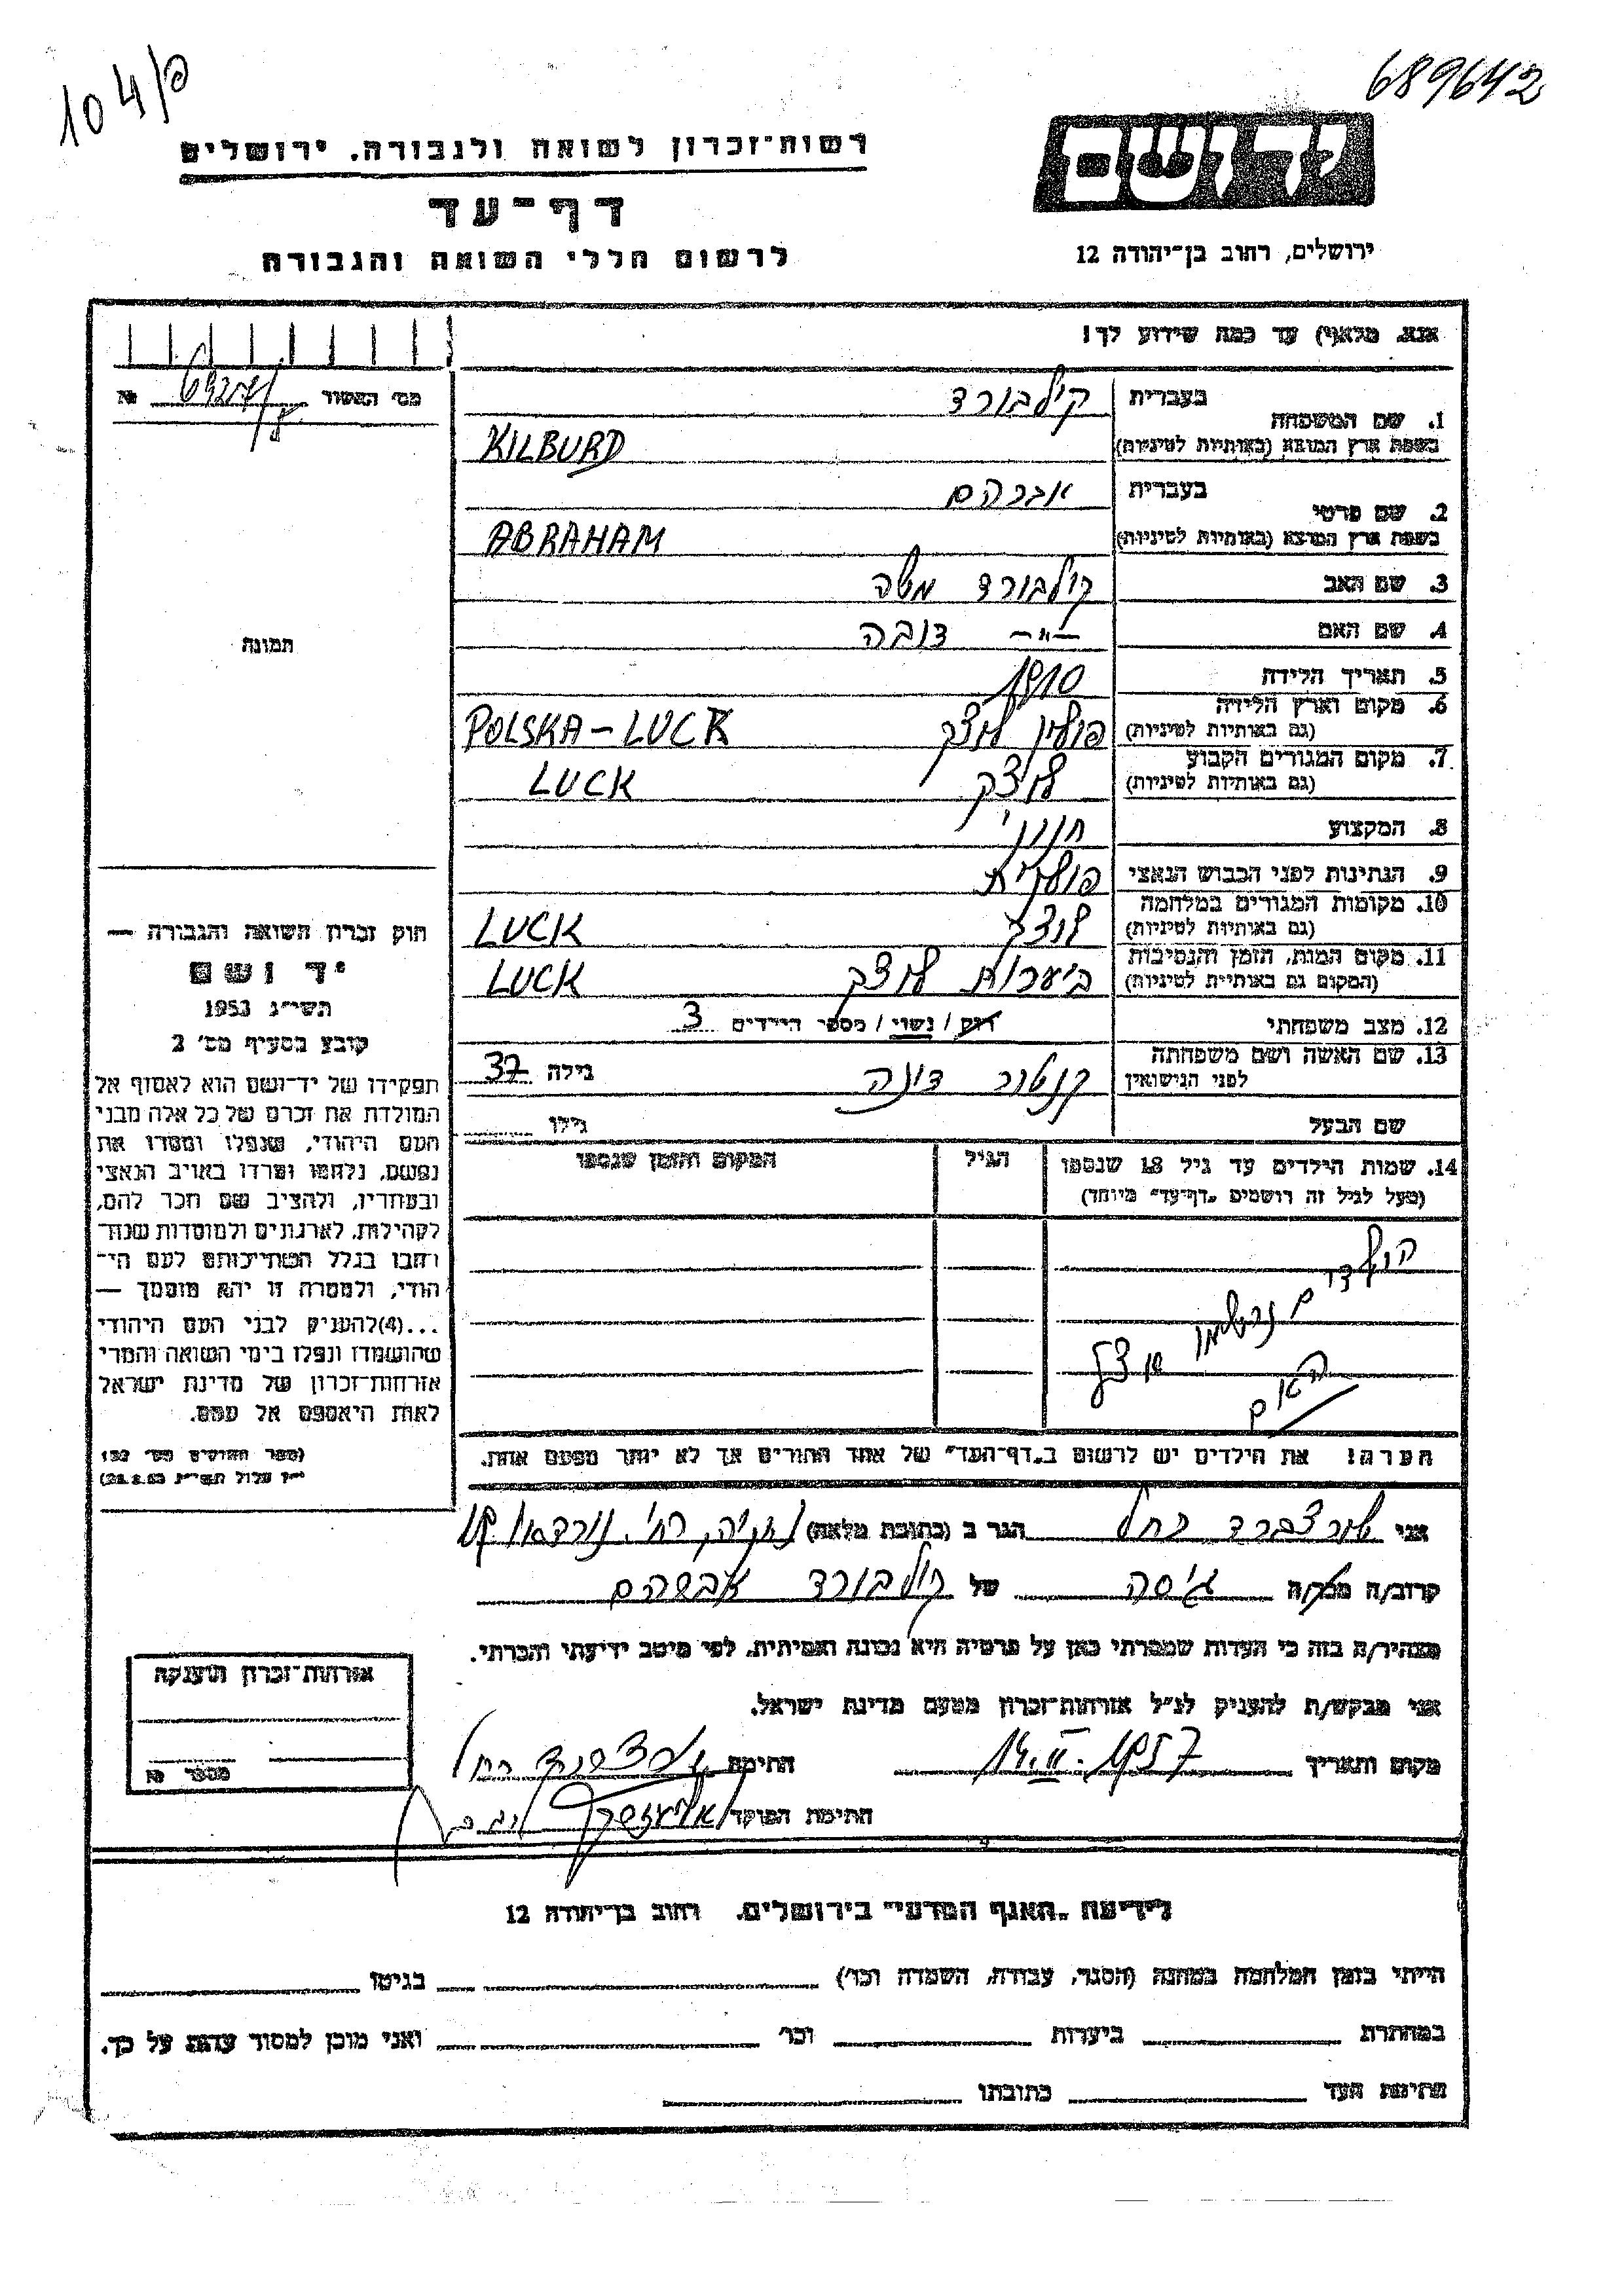 104/פ
689642
יד ושם
רשות־זכרון לשואה ולגבורה. ירושלים
דף־עד
לרשום חללי השואה והגבורה
ירושלים, רחוב בן־יהודה 12
אנא, מלא(י) עד כמה שידוע לך!
מס׳ האשור № 69271/
1. שם המשפחה
בעברית קילבורד
בשפת ארץ המוצא (באותיות לטיניות) KILBURD
2. שם פרטי
בעברית אברהם
בשפת ארץ המוצא (באותיות לטיניות) ABRAHAM
3. שם האב קילבורד משה
4. שם האם –"– דובה
5. תאריך הלידה 1910
6. מקום וארץ הלידה (גם באותיות לטיניות) פולין לוצק POLSKA – LUCK
7. מקום המגורים הקבוע (גם באותיות לטיניות) לוצק LUCK
8. המקצוע חנוני
9. הנתינות לפני הכבוש הנאצי פולנית
10. מקומות המגורים במלחמה (גם באותיות לטיניות) לוצק LUCK
11. מקום המות, הזמן והנסיבות (המקום גם באותיות לטיניות) ביערות לוצק LUCK
12. מצב משפחתי רווק / נשוי / מספר הילדים 3
13. שם האשה ושם משפחתה לפני הנישואין קנטור דינה גילה 37
שם הבעל גילו
14. שמות הילדים עד גיל 18 שנספו (מעל לגיל זה רושמים „דף־עד״ מיוחד)
הגיל
המקום והזמן שנספו
הילדים נרשמו אצל האם
הערה! את הילדים יש לרשום ב„דף־העד״ של אחד ההורים אך לא יותר מפעם אחת.
תמונה
חוק זכרון השואה והגבורה —
יד ושם
תשי״ג 1953
קובע בסעיף מס׳ 2
תפקידו של יד־ושם הוא לאסוף אל
המולדת את זכרם של כל אלה מבני
העם היהודי, שנפלו ומסרו את
נפשם, נלחמו ומרדו באויב הנאצי
ובעוזריו, ולהציב שם וזכר להם,
לקהילות, לארגונים ולמוסדות שנח־
רבו בגלל השתייכותם לעם הי־
הודי, ולמטרה זו יהא מוסמך —
...(4) להעניק לבני העם היהודי
שהושמדו ונפלו בימי השואה והמרי
אזרחות־זכרון של מדינת ישראל
לאות היאספם אל עמם.
(ספר החוקים מס׳ 132
י״ז אלול תשי״ג 28.8.53)
אני שורצברד רחל הגר ב (כתובת מלאה) נתניה, רח׳ נורדאו
קרוב/ה מכר/ה גיסה של קילבורד אברהם
מצהיר/ה בזה כי העדות שמסרתי כאן על פרטיה היא נכונה ואמיתית, לפי מיטב ידיעתי והכרתי.
אני מבקש/ת להעניק לנ״ל אזרחות־זכרון מטעם מדינת ישראל.
מקום ותאריך 14.II.1957 חתימה שורצברד רחל
חתימת הפוקד
אזרחות־זכרון הוענקה
מספר №
לידיעת „האגף המדעי״ בירושלים. רחוב בן־יהודה 12
הייתי בזמן המלחמה במחנה (הסגר, עבודה, השמדה וכו׳) בגיטו
במחתרת ביערות וכו׳ ואני מוכן למסור עדות על כך.
חתימת העד כתובתו